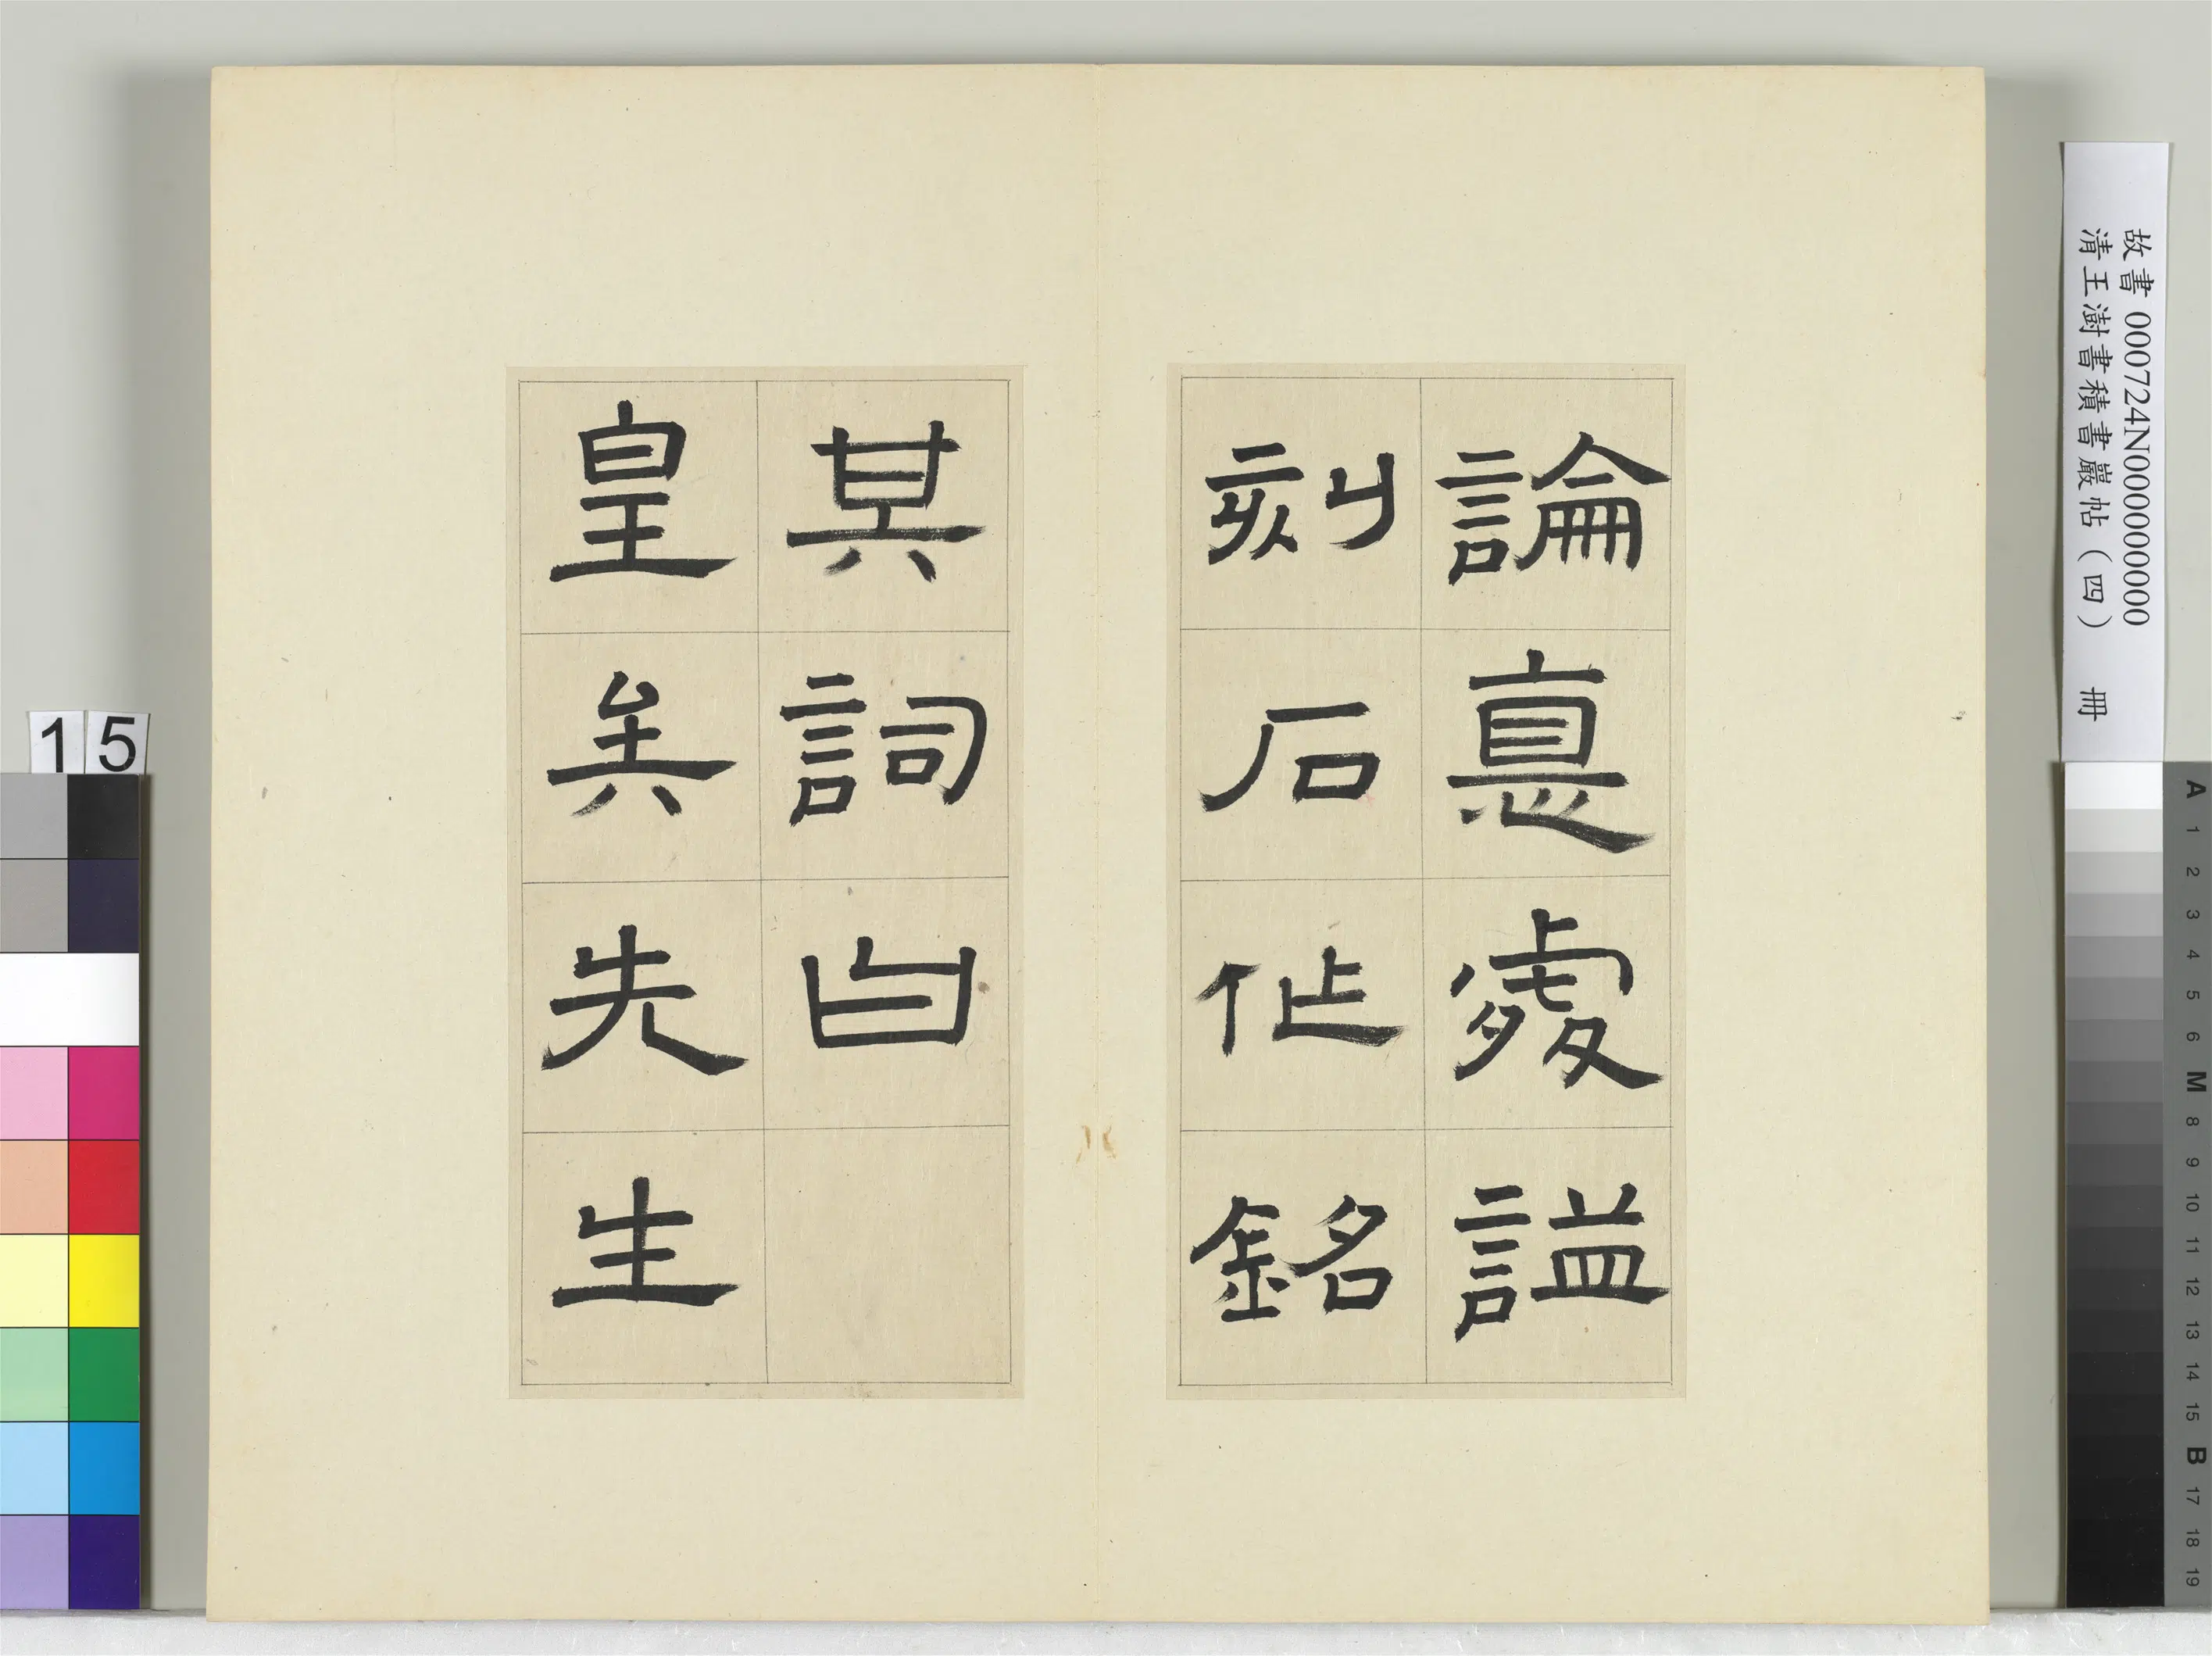 論悳處謚
刻石作銘
其詞曰
皇矣先生
故書 000724N000000000
清王澍書積書巖帖（四） 冊
15
A 1 2 3 4 5 6 M 8 9 10 11 12 13 14 15 B 17 18 19